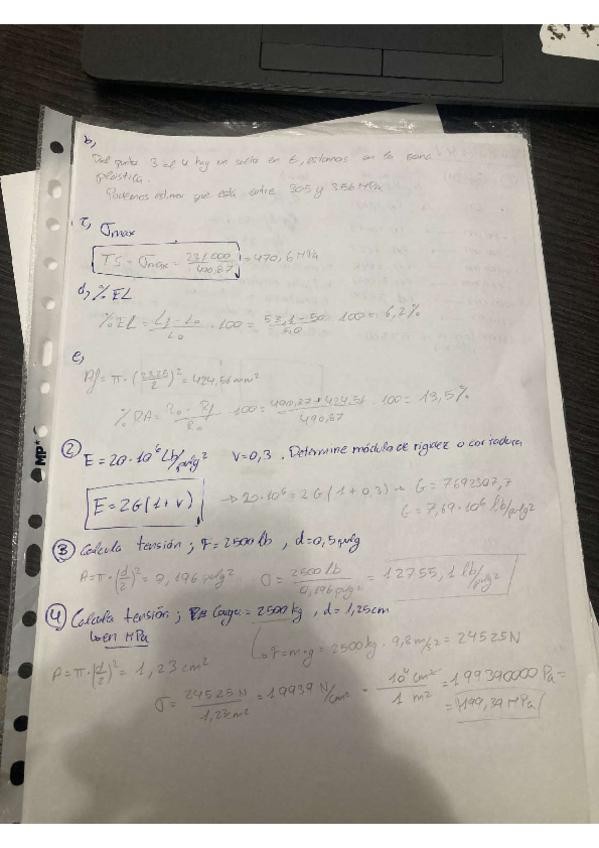 b,
Del punto 3 al 4 hay un salto en E, estamos en la zona
plástica.
Podemos estimar que está entre 305 y 356 MPa
c, σmax
TS = σmax = 231.000 / 490,87 = 470,6 MPa
d, % EL
% EL = (Lf - L0) / L0 · 100 = (53,1 - 50) / 50 · 100 = 6,2%
e,
Af = π · (23,25 / 2)² = 424,56 mm²
% RA = (A0 - Af) / A0 · 100 = (490,87 + 424,56) / 490,87 · 100 = 13,5%
② E = 20 · 10⁶ Lb/pulg² V = 0,3 . Determine módulo de rigidez o cortadura
E = 2G (1 + V) → 20·10⁶ = 2 G (1 + 0,3) → G = 7692307,7
G = 7,69 · 10⁶ lb/pulg²
③ Calcula tensión ; F = 2500 lb , d = 0,5 pulg
A = π · (d/2)² = 0,196 pulg² σ = 2500 lb / 0,196 pulg² = 12755,1 lb/pulg²
④ Calcula tensión ; Carga = 2500 kg , d = 1,25cm
↳ en MPa
↳ F = m · g = 2500 kg · 9,8 m/s² = 24525 N
A = π · (d/2)² = 1,23 cm²
σ = 24525 N / 1,23 cm² = 19939 N/cm² · 10⁴ cm² / 1 m² = 199390000 Pa =
= 199,39 MPa
MP